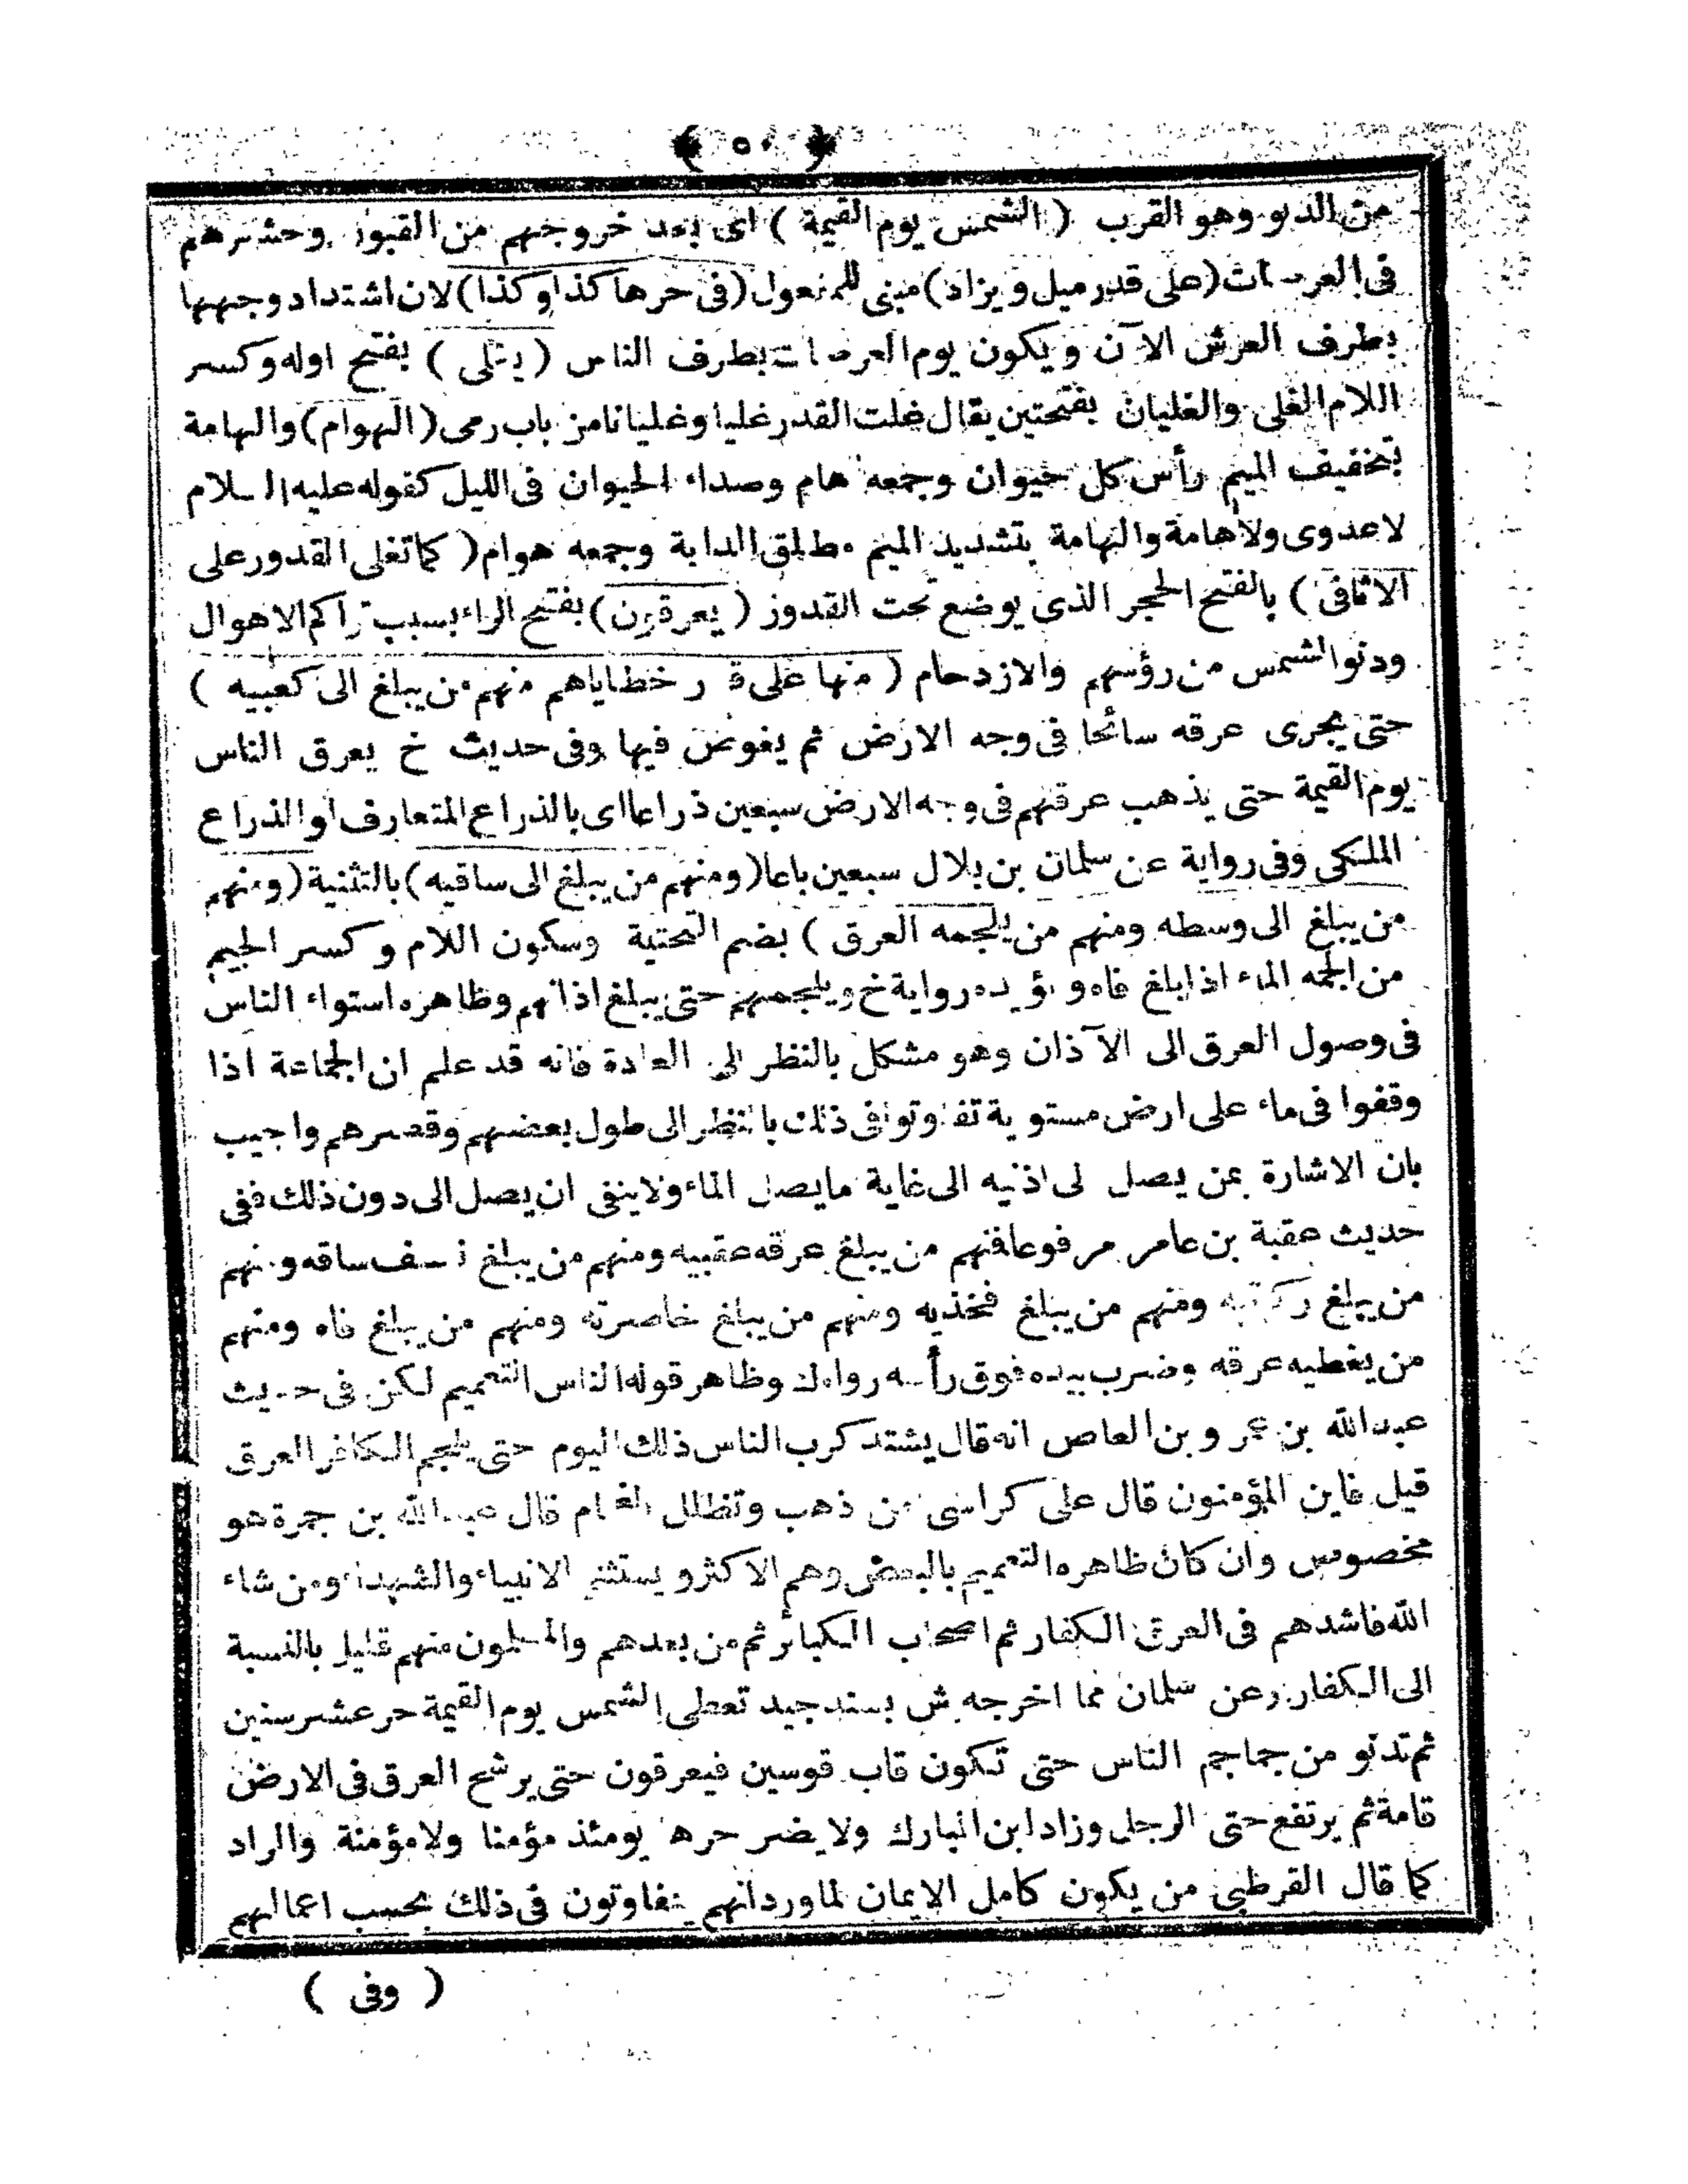 ﴿ ٥٠ ﴾
من الدنو وهو القرب ( الشمس يوم القيمة ) اى بعد خروجهم من القبور وحشرهم
فى العرصات (على قدر ميل ويزاد) مبنى للمفعول (فى حرها كذا وكذا) لان اشتداد وجهها
بطرف العرش الآن ويكون يوم العرصات بطرف الناس ( يغلى ) بفتح اوله وكسر
اللام الغلى والغليان بفتحتين يقال غلت القدر غليا وغليانا من باب رمى (الهوام) والهامة
بتخفيف الميم رأس كل حيوان وجمعه هام وصداء الحيوان فى الليل كقوله عليه السلام
لا عدوى ولا هامة والهامة بتشديد الميم مطلق الدابة وجمعه هوام ( كما تغلى القدور على
الاثافى ) بالفتح الحجر الذى يوضع تحت القدور ( يعرقون) بفتح الراء بسبب تراكم الاهوال
ودنوا الشمس من رؤسهم والازدحام ( منها على قدر خطاياهم منهم من يبلغ الى كعبيه )
حتى يجرى عرقه سائحا فى وجه الارض ثم يغوض فيها وفى حديث خ يعرق الناس
يوم القيمة حتى يذهب عرقهم فى وجه الارض سبعين ذراعا اى بالذراع المتعارف او الذراع
الملكى وفى رواية عن سلمان بن بلال سبعين باعا (ومنهم من يبلغ الى ساقيه) بالتثنية (ومنهم
من يبلغ الى وسطه ومنهم من يلجمه العرق ) بضم التحتية وسكون اللام وكسر الجيم
من الجمه الماء اذا بلغ فاه ويؤيده رواية خ ويلجمهم حتى يبلغ اذانهم وظاهره استواء الناس
فى وصول العرق الى الآذان وهو مشكل بالنظر الى العادة فانه قد علم ان الجماعة اذا
وقفوا فى ماء على ارض مستوية تفاوتوا فى ذلك بالنظر الى طول بعضهم وقصرهم واجيب
بان الاشارة بمن يصل الى اذنيه الى غاية ما يصل الماء ولا ينفى ان يصل الى دون ذلك ففى
حديث عقبة بن عامر مرفوعا فمنهم من يبلغ عرقه عقبيه ومنهم من يبلغ نصف ساقه ومنهم
من يبلغ ركبتيه ومنهم من يبلغ فخذيه ومنهم من يبلغ خاصرته ومنهم من يبلغ فاه ومنهم
من يغطيه عرقه وضرب بيده فوق رأسه رواه ك وظاهر قوله الناس التعميم لكن فى حديث
عبد الله بن عمر وبن العاص انه قال يشتد كرب الناس ذلك اليوم حتى يلجم الكافر العرق
قيل فاين المؤمنون قال على كراسى من ذهب وتظلل الغمام قال عبد الله بن جمرة هو
مخصوص وان كان ظاهره التعميم بالبعض وهم الاكثر ويستثنى الانبياء والشهداء ومن شاء
الله فاشدهم فى العرق الكفار ثم اصحاب الكبائر ثم من بعدهم والمسلمون منهم قليل بالنسبة
الى الكفار وعن سلمان مما اخرجه ش بسند جيد تعطى الشمس يوم القيمة حر عشر سنين
ثم تدنو من جماجم الناس حتى تكون قاب قوسين فيعرقون حتى يرشح العرق فى الارض
قامة ثم يرتفع حتى الرجل وزاد ابن المبارك ولا يضر حرها يومئذ مؤمنا ولا مؤمنة والمراد
كما قال القرطبى من يكون كامل الايمان لما ورد انهم يتفاوتون فى ذلك بحسب اعمالهم
( وفى )